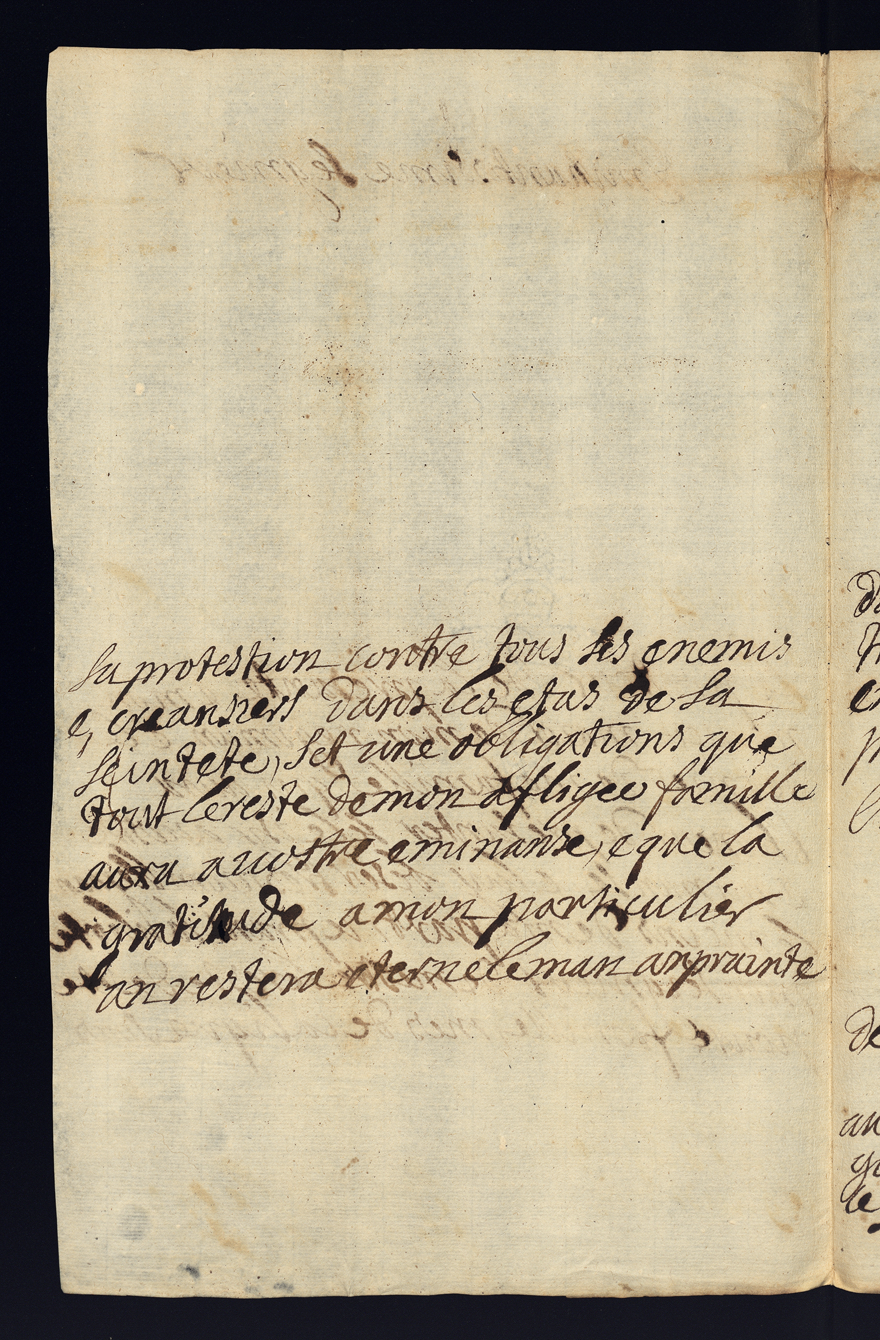 sa protestion contre tous ses enemis
e, creansiers dans les etas de sa
seintete, set une obligations que
tout lereste demon afligee famille
aura avostre eminanse, e que la
gratitude amon particulier
an restera eterneleman anprainte